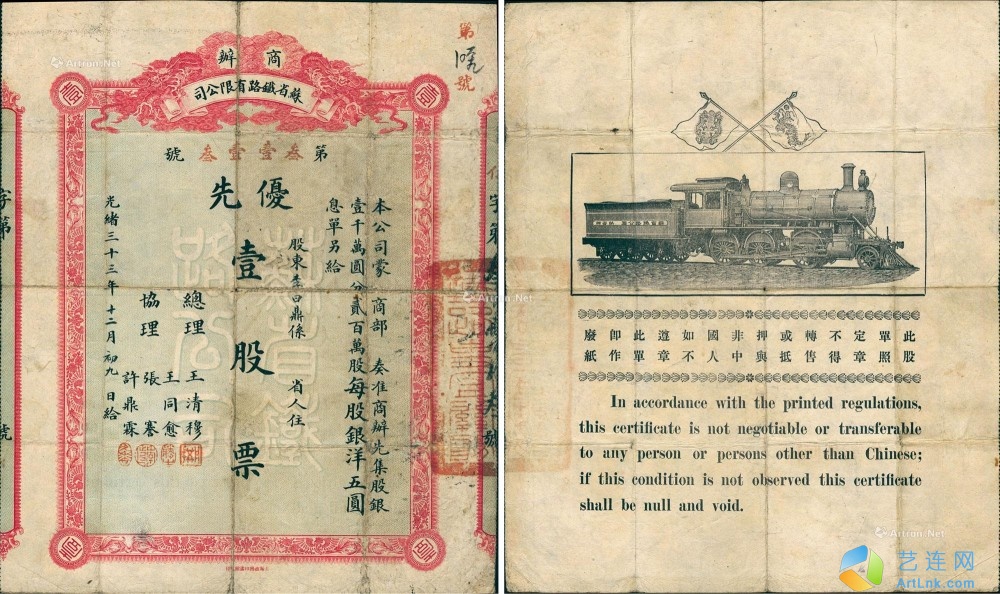 商辦
蘇省鐵路有限公司
第
號
第叁壹壹叁號
優先
壹股票
本公司蒙 商部 奏准商辦先集股銀
壹千萬圓分貳百萬股每股銀洋五圓
息單另給
股東李曰鼎係 省人住
總理 王清穆
協理 王同愈
張謇
許鼎霖
光緒三十三年十二月初九日給
蘇省鐵
路公司
字第
號
此單定不轉或押非國如遵此即廢
股照章得售抵與中人不章單作紙
In accordance with the printed regulations,
this certificate is not negotiable or transferable
to any person or persons other than Chinese;
if this condition is not observed this certificate
shall be null and void.
Artron.Net
艺连网
ArtLnk.com